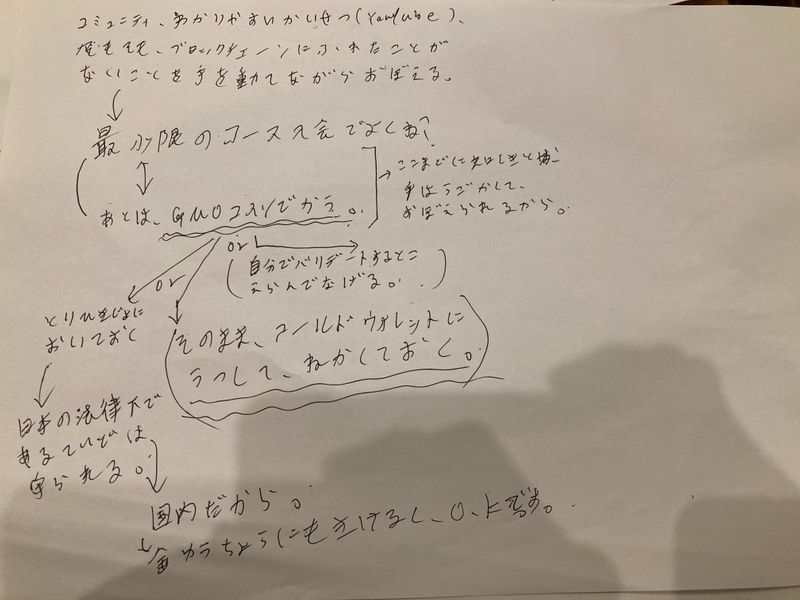 コミュニティ、わかりやすいかいせつ(Youtube)、
そもそも、ブロックチェーンにふれたことが
ないことを手を動かしながらおぼえる。
最小限のコースで良くね?
あとは、GMOコインでかう。
ここまでに
手はうごかして、
おぼえられるから。
or
自分でバリデートするとこ
えらんでなげる。
or
とりひきじょに
おいておく
そのまま、コールドウォレットに
うつして、ねかしておく。
日本の法律下で
あるていどは
守られる。
国内だから。
ゆうちょうにも
O.Kです。